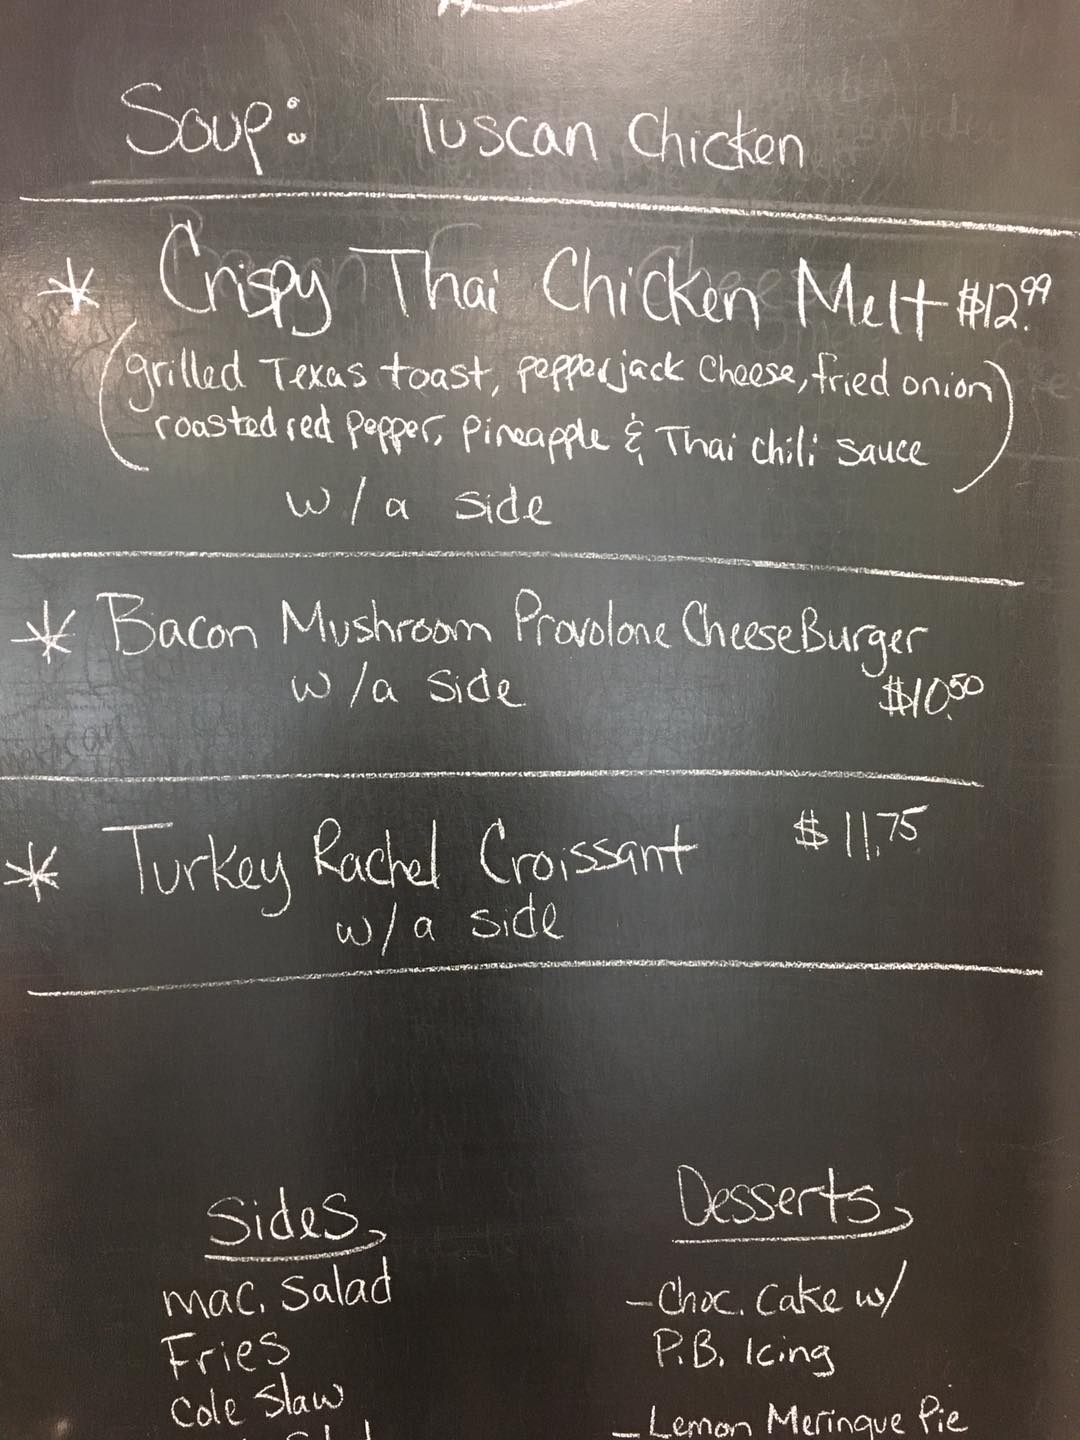 Soup: Tuscan Chicken
* Crispy Thai Chicken Melt $12.99
(grilled Texas toast, pepperjack Cheese, fried onion
roasted red pepper, pineapple & Thai chili sauce)
w/a side
* Bacon Mushroom Provolone CheeseBurger
w/a side $10.50
* Turkey Rachel Croissant $11.75
w/a side
Sides
mac. Salad
Fries
Cole Slaw
Desserts
- Choc. Cake w/
P.B. Icing
- Lemon Meringue Pie